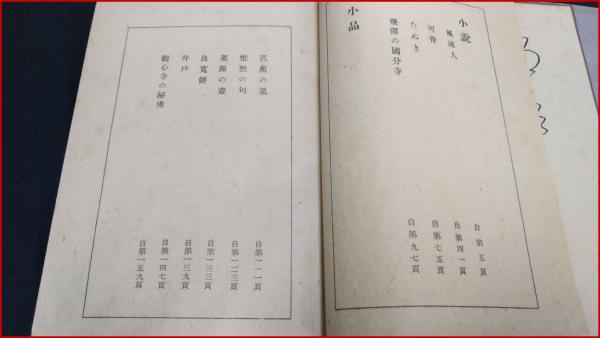 小說
風流人
自第五頁
河骨
自第四一頁
たぬき
自第七五頁
飛彈の國分寺
自第九七頁
小品
芭蕉の墓
自第一一一頁
惟然の句
自第一二三頁
自第一三三頁
良寬餅
自第一三九頁
井戶
自第一四七頁
觀心寺の秘佛
自第一五九頁